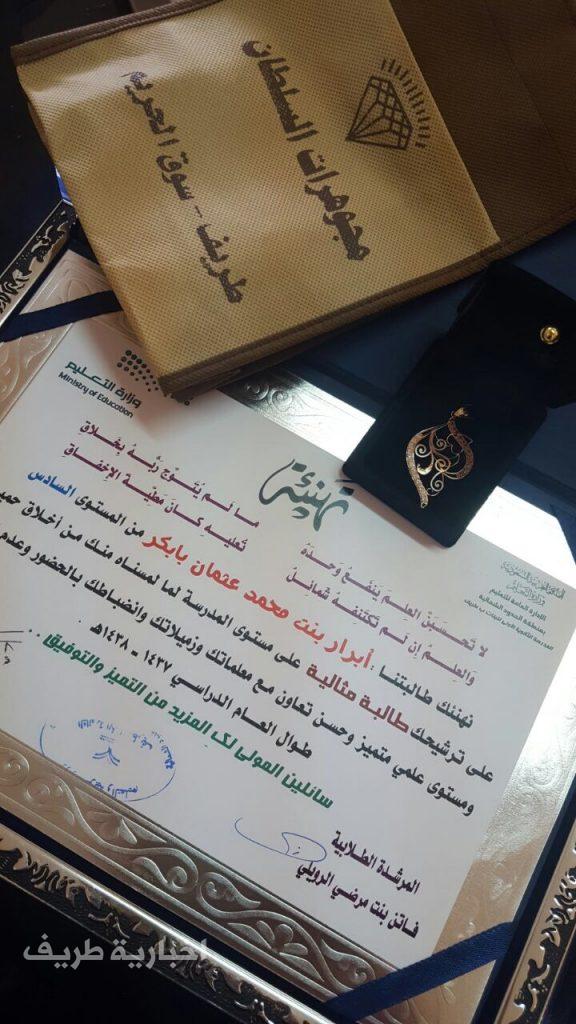 مجوهرات السلطان
طريف - سوق الحريم
وزارة التعليم
Ministry of Education
وزارة التعليم
الإدارة العامة للتعليم
بمنطقة الحدود الشمالية
تهنئة
لا تَحسَبَنَّ العِلمَ يَنفَعُ وَحدَهُ
ما لَم يُتَوَّج رَبُّهُ بِخَلاقِ
وَالعِلمُ إِن لَم تَكتَنِفهُ شَمائِلٌ
تُعليهِ كانَ مَطِيَّةَ الإِخفاقِ
نهنئك طالبتنا : أبرار بنت محمد عثمان بابكر من المستوى السادس
على ترشيحك طالبة مثالية على مستوى المدرسة لما لمسناه منك من أخلاق
ومستوى علمي متميز وحسن تعاون مع معلماتك وزميلاتك وانضباطك بالحضور وعدم
طوال العام الدراسي ١٤٣٧ - ١٤٣٨هـ
سائلين المولى لك المزيد من التميز والتوفيق ..
المرشدة الطلابية
فاتن بنت مرضي الرويلي
اخبارية طريف